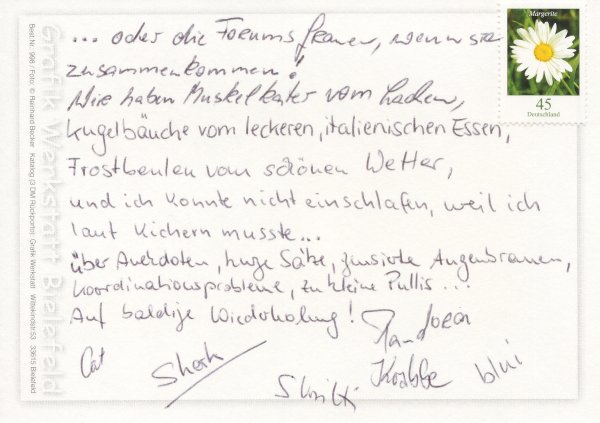 ... oder die Forumsfrauen, wenn sie
zusammenkommen!
Wir haben Muskelkater vom Lachen,
Kugelbäuche vom leckeren, italienischen Essen,
Frostbeulen vom schönen Wetter,
und ich konnte nicht einschlafen, weil ich
laut kichern musste...
über Anekdoten, kurze Sätze, frisierte Augenbrauen,
Koordinationsprobleme, zu kleine Pullis...
Auf baldige Wiederholung!
Pandora
Cat
Krabbe
blui
Margerite
45
Deutschland
Grafik Werkstatt Bielefeld
Best.Nr. 968 / Foto: © Reinhard Becker Katalog (3 DM Rückporto): Grafik Werkstatt Wittekindstr.53 33615 Bielefeld